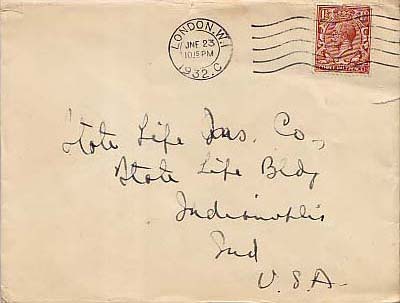 LONDON.W.1
JNE 23
10.15 PM
1932.C
State Life Ins. Co.,
State Life Bldg
Indianapolis
Ind
U.S.A.